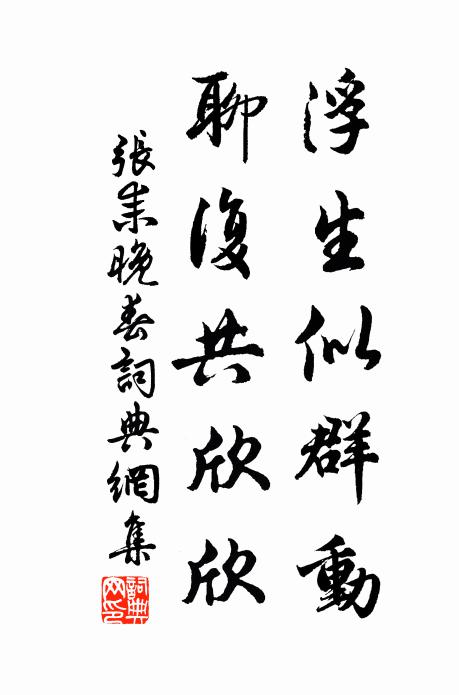 浮生似群動
聊復共欣欣
張耒晚春詞典網集
詞典網印